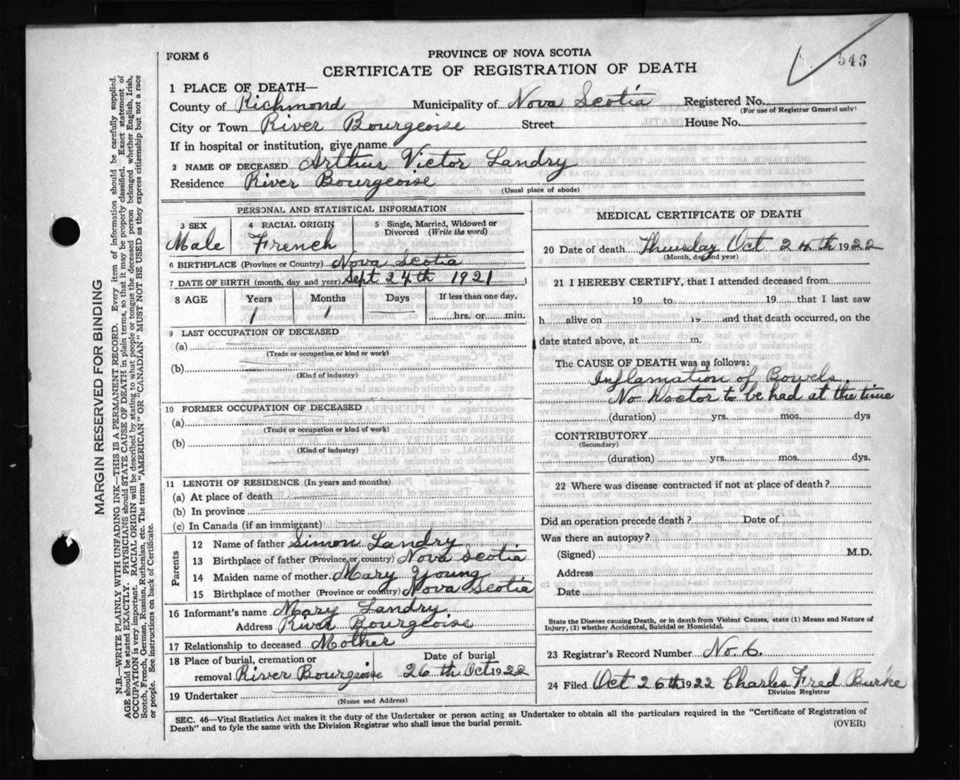 FORM 6
PROVINCE OF NOVA SCOTIA
CERTIFICATE OF REGISTRATION OF DEATH
543
1 PLACE OF DEATH—
County of Richmond Municipality of Nova Scotia Registered No.
(For use of Registrar General only)
City or Town River Bourgeoise Street House No.
If in hospital or institution, give name
2 NAME OF DECEASED Arthur Victor Landry
Residence River Bourgeoise
(Usual place of abode)
PERSONAL AND STATISTICAL INFORMATION
3 SEX 4 RACIAL ORIGIN 5 Single, Married, Widowed or Divorced (Write the word)
Male French
6 BIRTHPLACE (Province or Country) Nova Scotia
7 DATE OF BIRTH (month, day, and year) Sept 24th 1921
8 AGE Years Months Days If less than one day,
1 1 hrs. or min.
9 LAST OCCUPATION OF DECEASED
(a)
(Trade or occupation or kind or work)
(b)
(Kind of industry)
10 FORMER OCCUPATION OF DECEASED
(a)
(Trade or occupation or kind or work)
(b)
(Kind of industry)
11 LENGTH OF RESIDENCE (In years and months)
(a) At place of death
(b) In province
(c) In Canada (if an immigrant)
Parents
12 Name of father Simon Landry
13 Birthplace of father (Province or country) Nova Scotia
14 Maiden name of mother Mary Young
15 Birthplace of mother (Province or country) Nova Scotia
16 Informant's name Mary Landry
Address River Bourgeoise
17 Relationship to deceased Mother
18 Place of burial, cremation or removal River Bourgeoise Date of burial 26th Oct 1922
19 Undertaker
(Name and Address)
MEDICAL CERTIFICATE OF DEATH
20 Date of death Thursday Oct 24th 1922
(Month, day and year)
21 I HEREBY CERTIFY, that I attended deceased from
19 to 19 that I last saw
h alive on 19 and that death occurred, on the
date stated above, at m.
The CAUSE OF DEATH was as follows:
Inflamation of Bowels
No Doctor to be had at the time
(duration) yrs. mos. dys.
CONTRIBUTORY
(Secondary)
(duration) yrs. mos. dys.
22 Where was disease contracted if not at place of death?
Did an operation precede death? Date of
Was there an autopsy?
(Signed) M.D.
Address
Date
State the Disease causing Death, or in death from Violent Causes, state (1) Means and Nature of
Injury, (2) whether Accidental, Suicidal or Homicidal.
23 Registrar's Record Number No. 6.
24 Filed Oct 26th 1922 Charles Fred Burke
Division Registrar
SEC. 46—Vital Statistics Act makes it the duty of the Undertaker or person acting as Undertaker to obtain all the particulars required in the "Certificate of Registration of
Death" and to fyle the same with the Division Registrar who shall issue the burial permit.
(OVER)
MARGIN RESERVED FOR BINDING
N.B.—WRITE PLAINLY WITH UNFADING INK—THIS IS A PERMANENT RECORD. Every item of information should be carefully supplied.
AGE should be stated EXACTLY. PHYSICIANS should STATE CAUSE OF DEATH in plain terms, so that it may be properly classified. Exact statement of
OCCUPATION is very important. RACIAL ORIGIN will be described by stating to what people or tongue the deceased person belonged whether English, Irish,
Scotch, French, German, Russian, Ruthenian, etc. The terms "AMERICAN" OR "CANADIAN" MUST NOT BE USED as they express citizenship but not a race
or people. See instructions on back of Certificate.